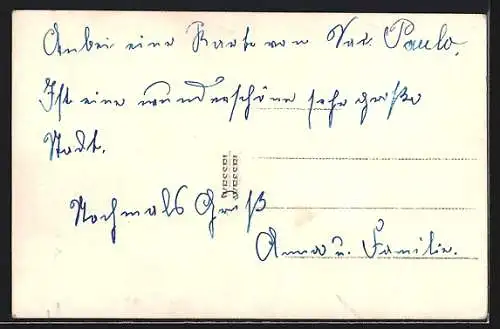 Anbei eine Karte von Sao Paulo.
Ist eine wunderschöne sehr große
Stadt.
Nochmals Gruß
WESSEL
Anna u. Familie.